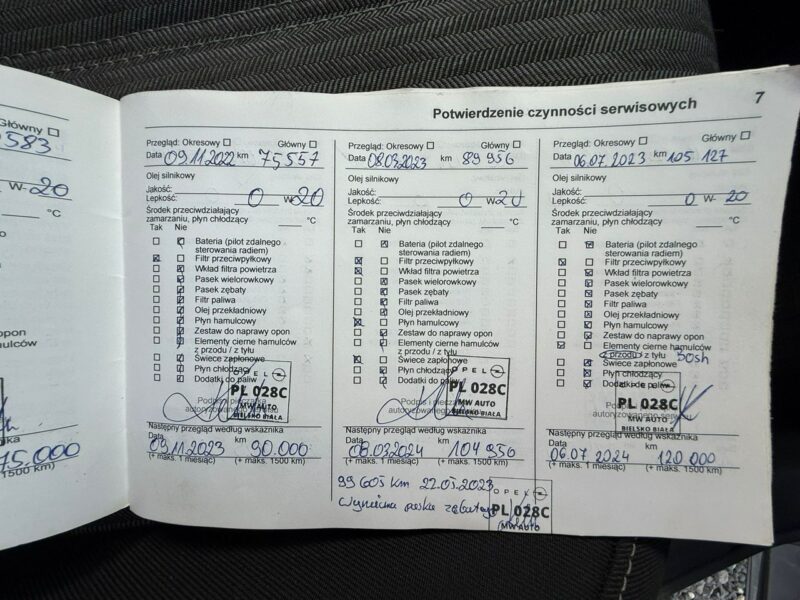 Główny
583
W- 20
°C
opon
hamulców
75.000
1500 km)
Potwierdzenie czynności serwisowych 7
Przegląd: Okresowy Główny
Data 09.11.2022 km 75557
Olej silnikowy
Jakość:
Lepkość: 0 W 20
Środek przeciwdziałający
zamarzaniu, płyn chłodzący °C
Tak Nie
Bateria (pilot zdalnego
sterowania radiem)
Filtr przeciwpyłkowy
Wkład filtra powietrza
Pasek wielorowkowy
Pasek zębaty
Filtr paliwa
Olej przekładniowy
Płyn hamulcowy
Zestaw do naprawy opon
Elementy cierne hamulców
z przodu / z tyłu
Świece zapłonowe
Płyn chłodzący
Dodatki do paliw
OPEL
PL 028C
MW AUTO
BIELSKO BIAŁA
Następny przegląd według wskaźnika
Data km
09.11.2023 90.000
(+ maks. 1 miesiąc) (+ maks. 1500 km)
Przegląd: Okresowy Główny
Data 08.03.2023 km 89 956
Olej silnikowy
Jakość:
Lepkość: 0 W 20
Środek przeciwdziałający
zamarzaniu, płyn chłodzący °C
Tak Nie
Bateria (pilot zdalnego
sterowania radiem)
Filtr przeciwpyłkowy
Wkład filtra powietrza
Pasek wielorowkowy
Pasek zębaty
Filtr paliwa
Olej przekładniowy
Płyn hamulcowy
Zestaw do naprawy opon
Elementy cierne hamulców
z przodu / z tyłu
Świece zapłonowe
Płyn chłodzący
Dodatki do paliw
OPEL
PL 028C
MW AUTO
BIELSKO BIAŁA
Następny przegląd według wskaźnika
Data km
08.03.2024 104 956
(+ maks. 1 miesiąc) (+ maks. 1500 km)
99 605 km 22.05.2023
wymiana paska zębatego
OPEL
PL 028C
MW AUTO
Przegląd: Okresowy Główny
Data 06.07.2023 km 105 127
Olej silnikowy
Jakość:
Lepkość: 0 W- 20
Środek przeciwdziałający
zamarzaniu, płyn chłodzący °C
Tak Nie
Bateria (pilot zdalnego
sterowania radiem)
Filtr przeciwpyłkowy
Wkład filtra powietrza
Pasek wielorowkowy
Pasek zębaty
Filtr paliwa
Olej przekładniowy
Płyn hamulcowy
Zestaw do naprawy opon
Elementy cierne hamulców
z przodu / z tyłu Bosh
Świece zapłonowe
Płyn chłodzący
Dodatki do paliw
PL 028C
MW AUTO
BIELSKO BIAŁA
Następny przegląd według wskaźnika
Data km
06.07.2024 120 000
(+ maks. 1 miesiąc) (+ maks. 1500 km)